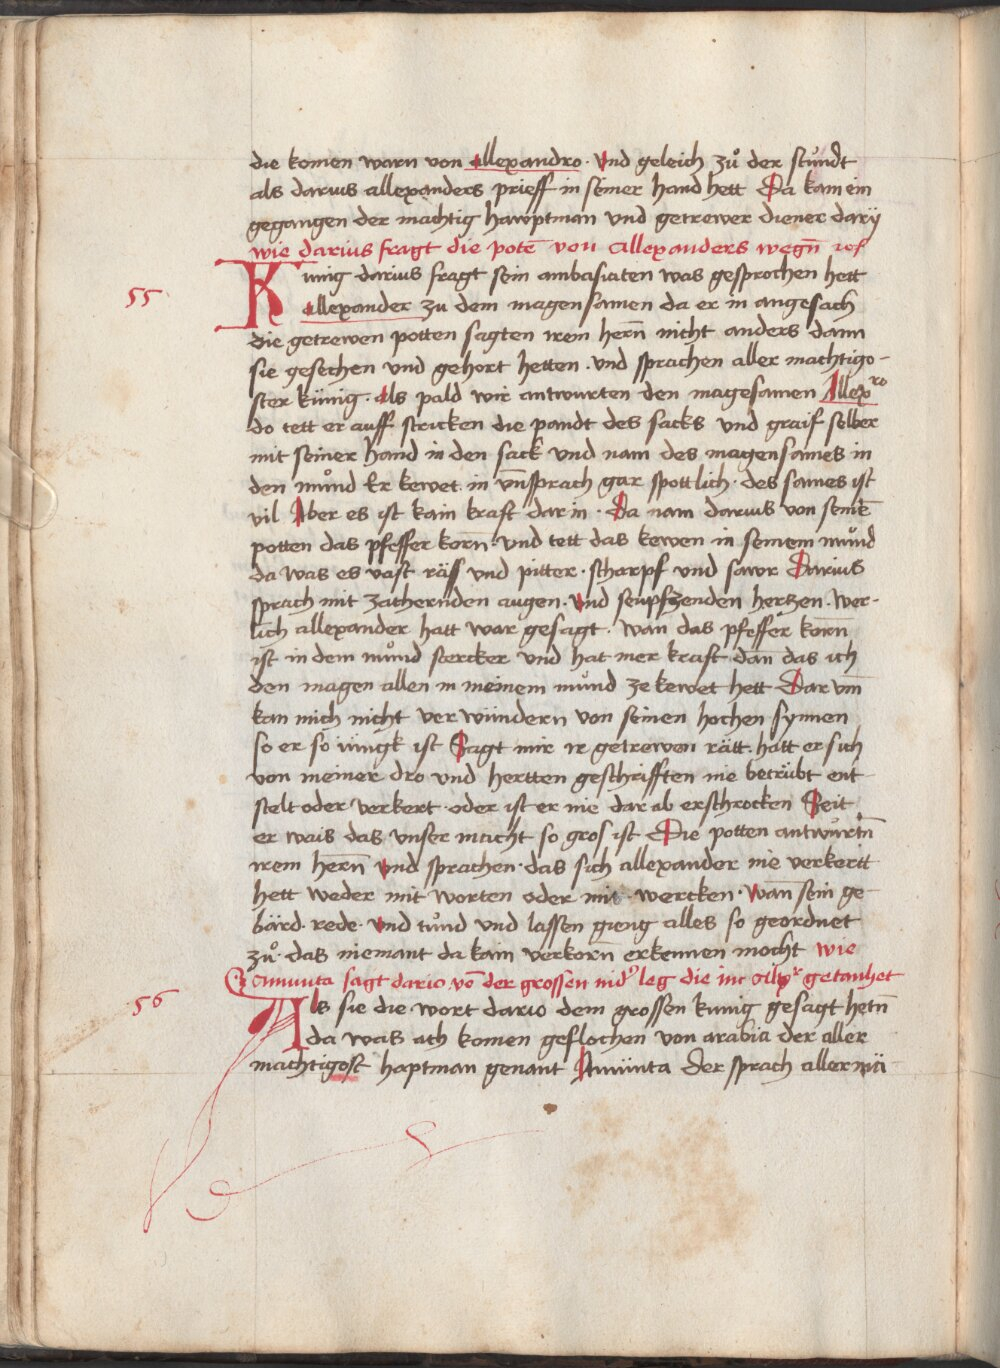 die komen warn von allexandro · Vnd geleich zů der stůndt
als darius allexanders prieff in seiner hand hett Da kam ein
gegangen der machtig hawptman und getrewer diener darÿ
wie darius fragt die potē von allexanders wegn̄
55
Kunig darius fragt sein ambasiaten was gesprochen hett
allexander zu dem magensamen da er in angesach
die getrewen potten sagten irem hern̄ nicht anders dann
sie gesechen vnd gehort hetten · vnd sprachen aller machtigo-
ster künig · als pald wir antwurten den magesamen Allexro
do tett er auff stricken die pandt des sacks vnd graif selber
mit seiner hand in den sack vnd nam des magensames in
den můnd Er kewet in vn̄ sprach gar spottlich · des sames ist
vil Aber es ist kain kraft dar in · Da nam darius von seinē
potten das pfeffer korn · vnd tett das kewen in seinem můnd
da was es vast räss vnd pitter · scharpf vnd sawr Darius
sprach mit zachernden augen · Vnd seupfzenden hertzen · wer-
lich allexander hatt war gesagt · wan das pfeffer korn̄
ist in dem můnd stercker vnd hat mer kraft dan̄ das ich
den magen allen in meinem můnd ze kewet hett Dar vm̄
kan mich nicht ver wündern von seinen hochen synnen
so er so iüngk ist Sagt mir ir getrewen rätt · hatt er sich
von meiner dro vnd hertten geschrifften nie betrübt ent-
stelt oder verkert · oder ist er nie dar ab erschrocken Seit
er wais das vnser macht so gros ist Die potten antwůrtn̄
irem hern̄ Vnd sprachen · das sich allexander nie verkertt
hett weder mit worten oder mit · wercken · Wan̄ sein ge-
bärd · rede · vnd tůnd vnd lassen gieng alles so geordnet
zů · das niemant da kain verkorn̄ erkennen mocht wie
Amunta sagt dario vō der grossen nid' leg die im getan het
56
Als sie die wort dario dem grossen kunig gesagt hetn̄
da was ach komen geflochen von arabia der aller
machtigost haptman genant Amünta Der sprach aller mä-